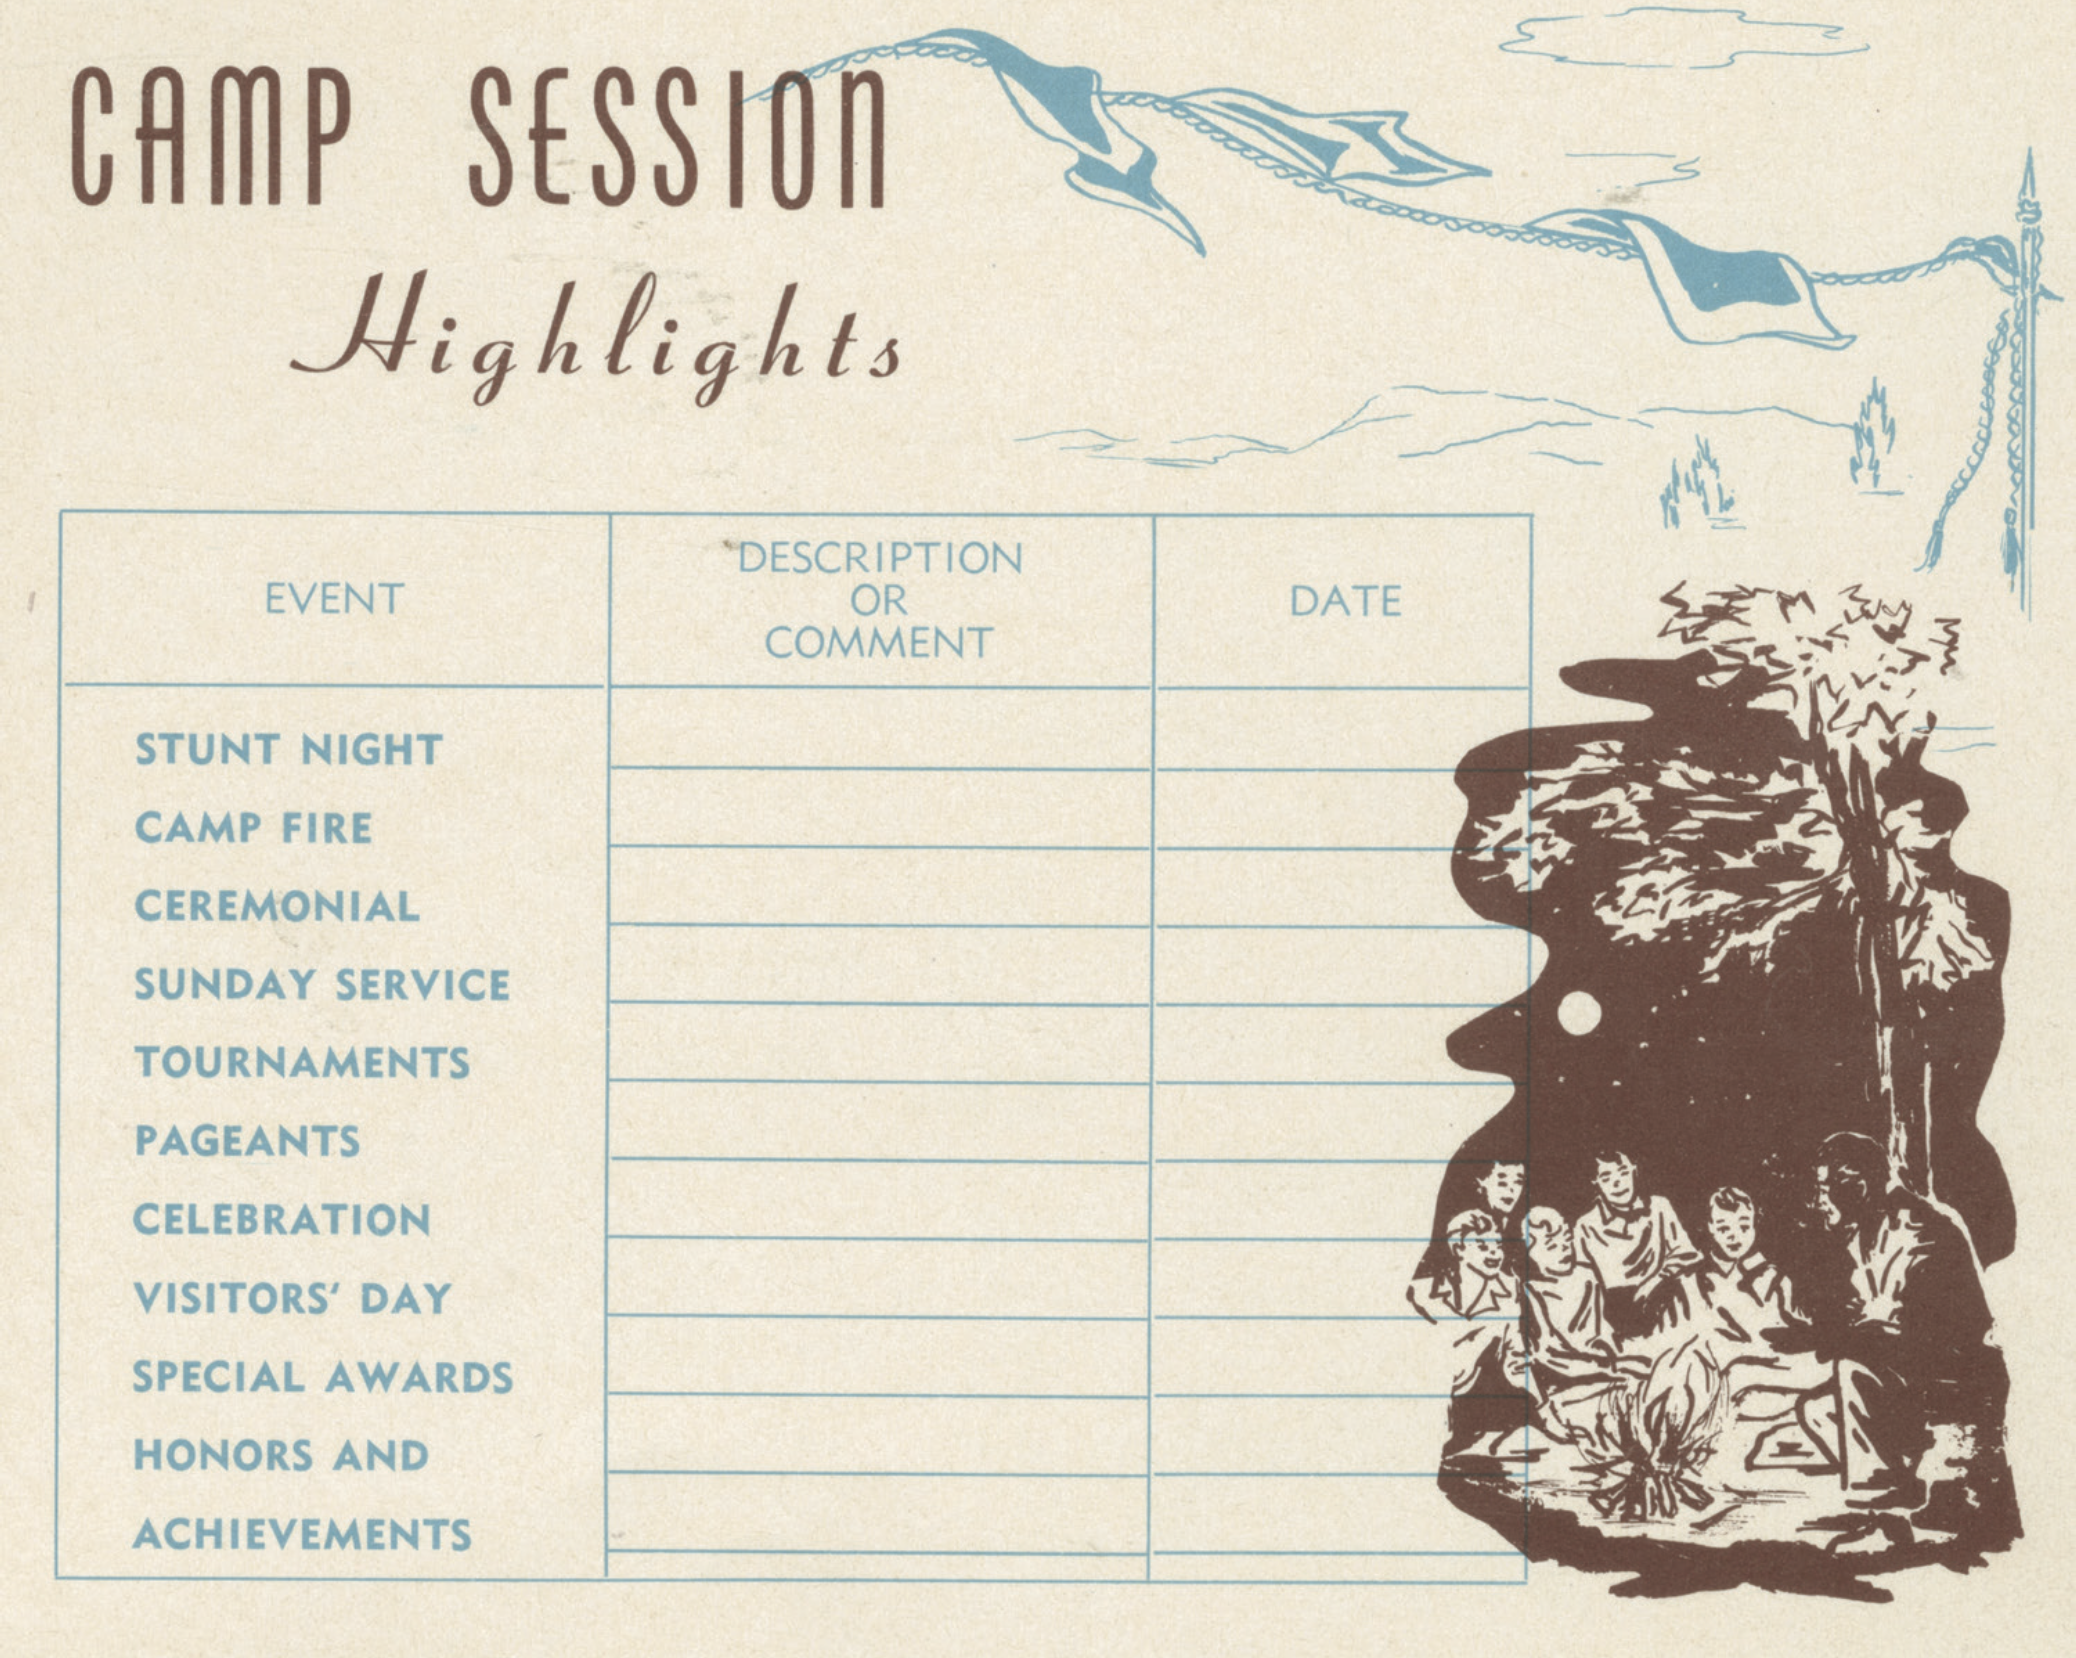 CAMP SESSION
Highlights
EVENT
DESCRIPTION
OR
COMMENT
DATE
STUNT NIGHT
CAMP FIRE
CEREMONIAL
SUNDAY SERVICE
TOURNAMENTS
PAGEANTS
CELEBRATION
VISITORS' DAY
SPECIAL AWARDS
HONORS AND
ACHIEVEMENTS